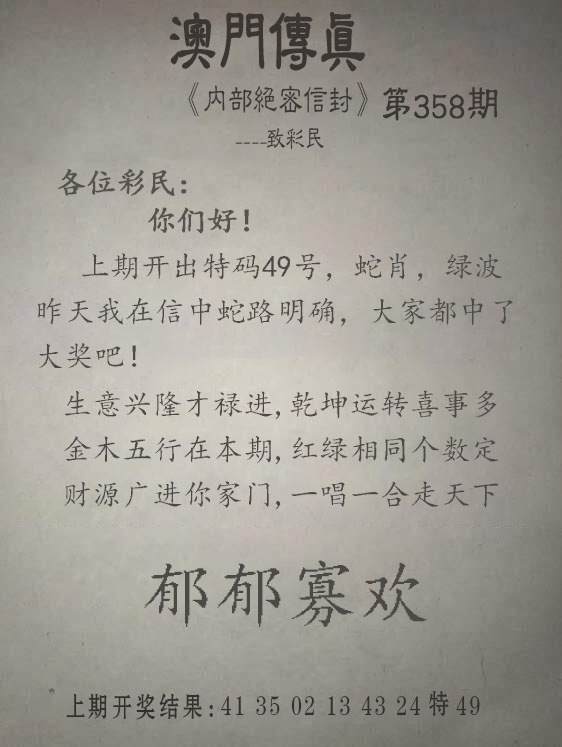 澳門傳眞
《内部絕密信封》第358期
----致彩民
各位彩民：
你们好！
上期开出特码49号，蛇肖，绿波
昨天我在信中蛇路明确，大家都中了
大奖吧！
生意兴隆才禄进,乾坤运转喜事多
金木五行在本期,红绿相同个数定
财源广进你家门,一唱一合走天下
郁郁寡欢
上期开奖结果:41 35 02 13 43 24 特 49